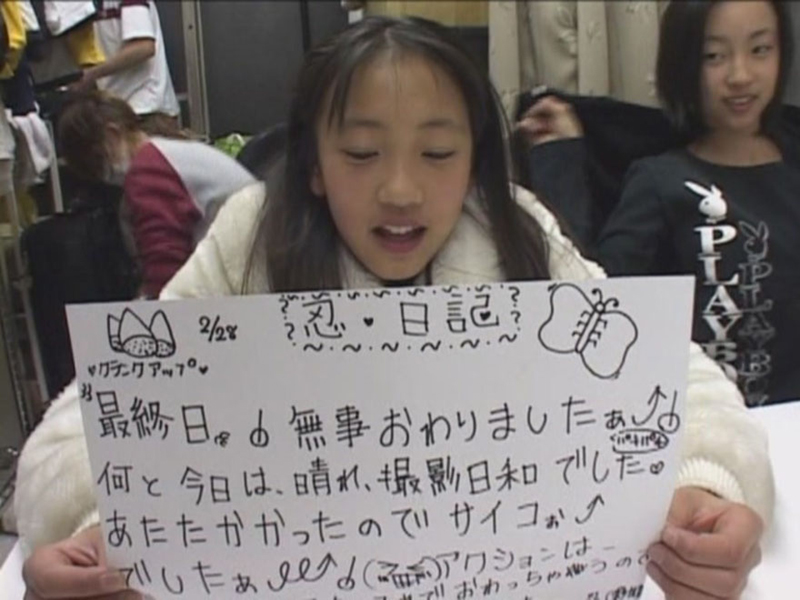 2/28
忍・日記
♥クランクアップ♥
最終日。無事おわりましたぁ
何と今日は、晴れ、撮影日和でした♥
あたたかかったのでサイコぉ
でしたぁ アクションは
でおわっちゃうので
PLAYBO
PLAYBO